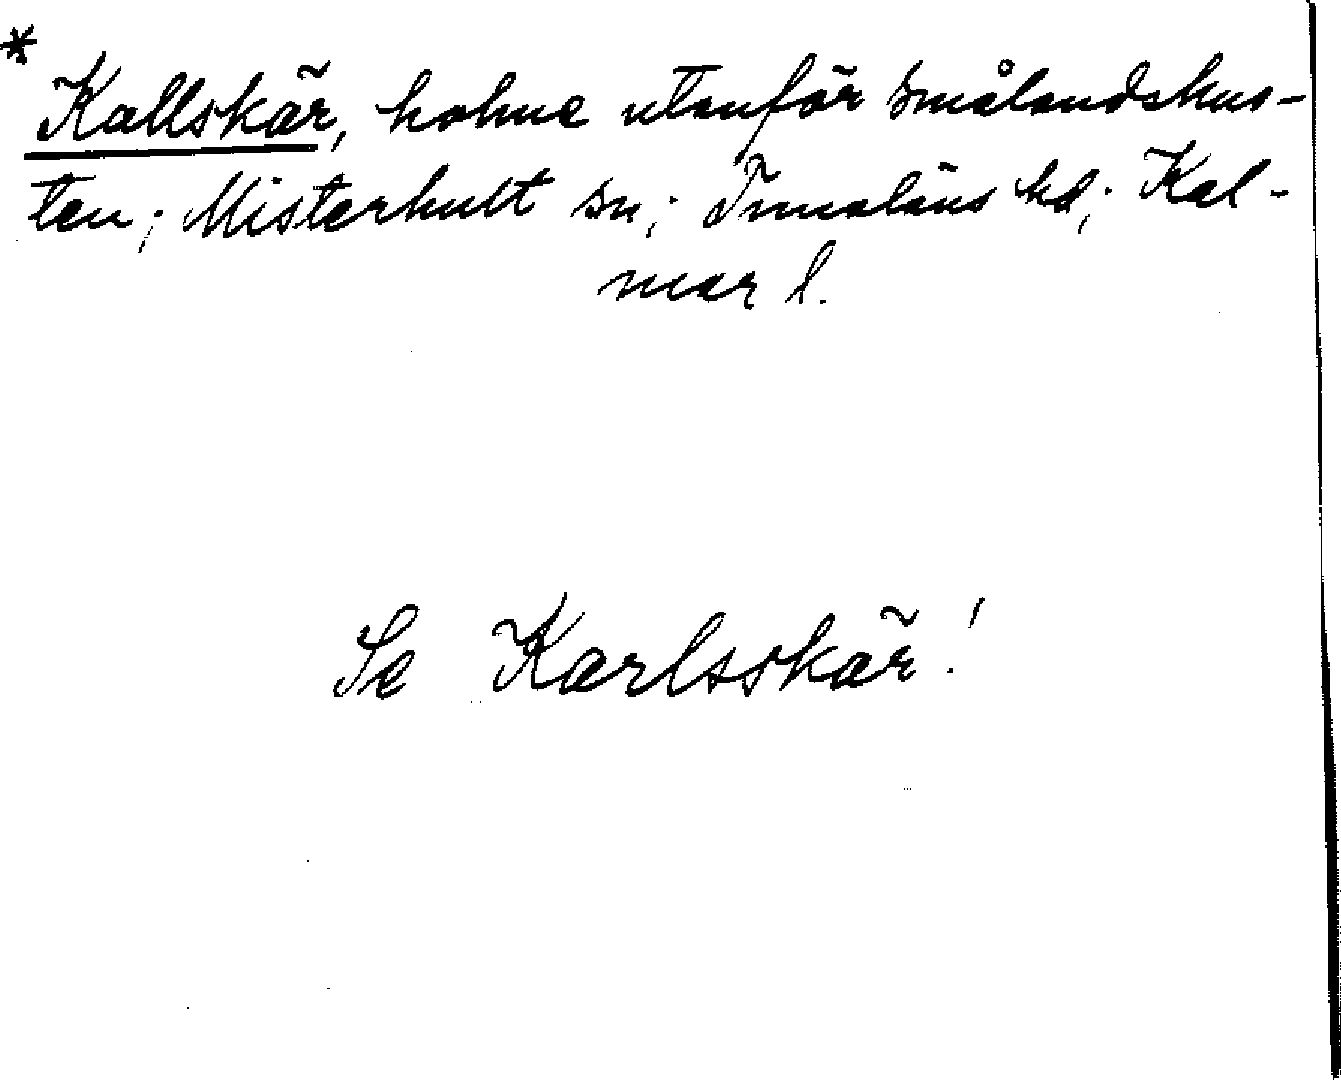 * Kallskär, holme utanför Smålandskus-
ten; Misterhult sn; Tunaläns hd; Kal-
mar l.
Se Karlsskär!